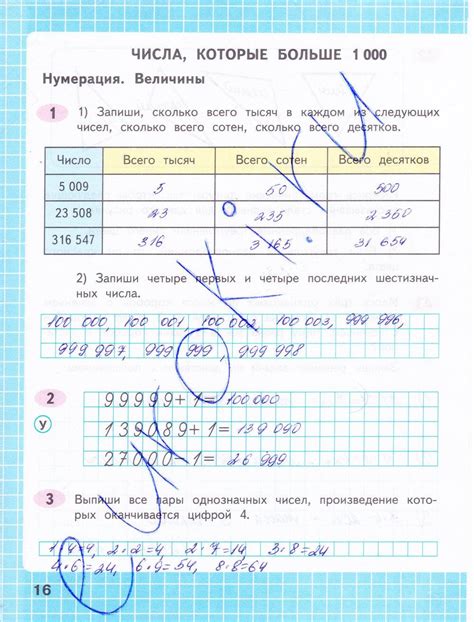 ЧИСЛА, КОТОРЫЕ БОЛЬШЕ 1 000
Нумерация. Величины
1 1) Запиши, сколько всего тысяч в каждом из следующих
чисел, сколько всего сотен, сколько всего десятков.
Число Всего тысяч Всего сотен Всего десятков
5 009 5 50 500
23 508 23 235 2 350
316 547 316 3 165 31 654
2) Запиши четыре первых и четыре последних шестизнач-
ных числа.
100 000, 100 001, 100 002, 100 003, 999 996,
999 997, 999 999, 999 998
2 99999+1=100 000
У 139089+1=139 090
27000-1=26 999
3 Выпиши все пары однозначных чисел, произведение кото-
рых оканчивается цифрой 4.
1·4=4, 2·2=4, 2·7=14, 3·8=24
4·6=24, 6·9=54, 8·8=64
16